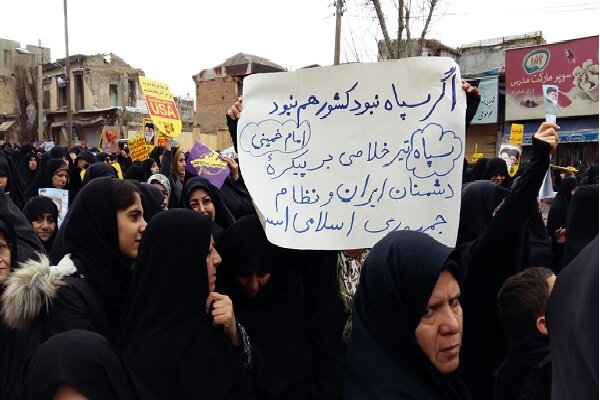 اگر سپاه نبود کشور هم نبود
امام خمینی
سپاه تیر خلاصی بر پیکرهٔ
دشمنان ایران و نظام
جمهوری اسلامی است
USA
سوپر مارکت مدرس